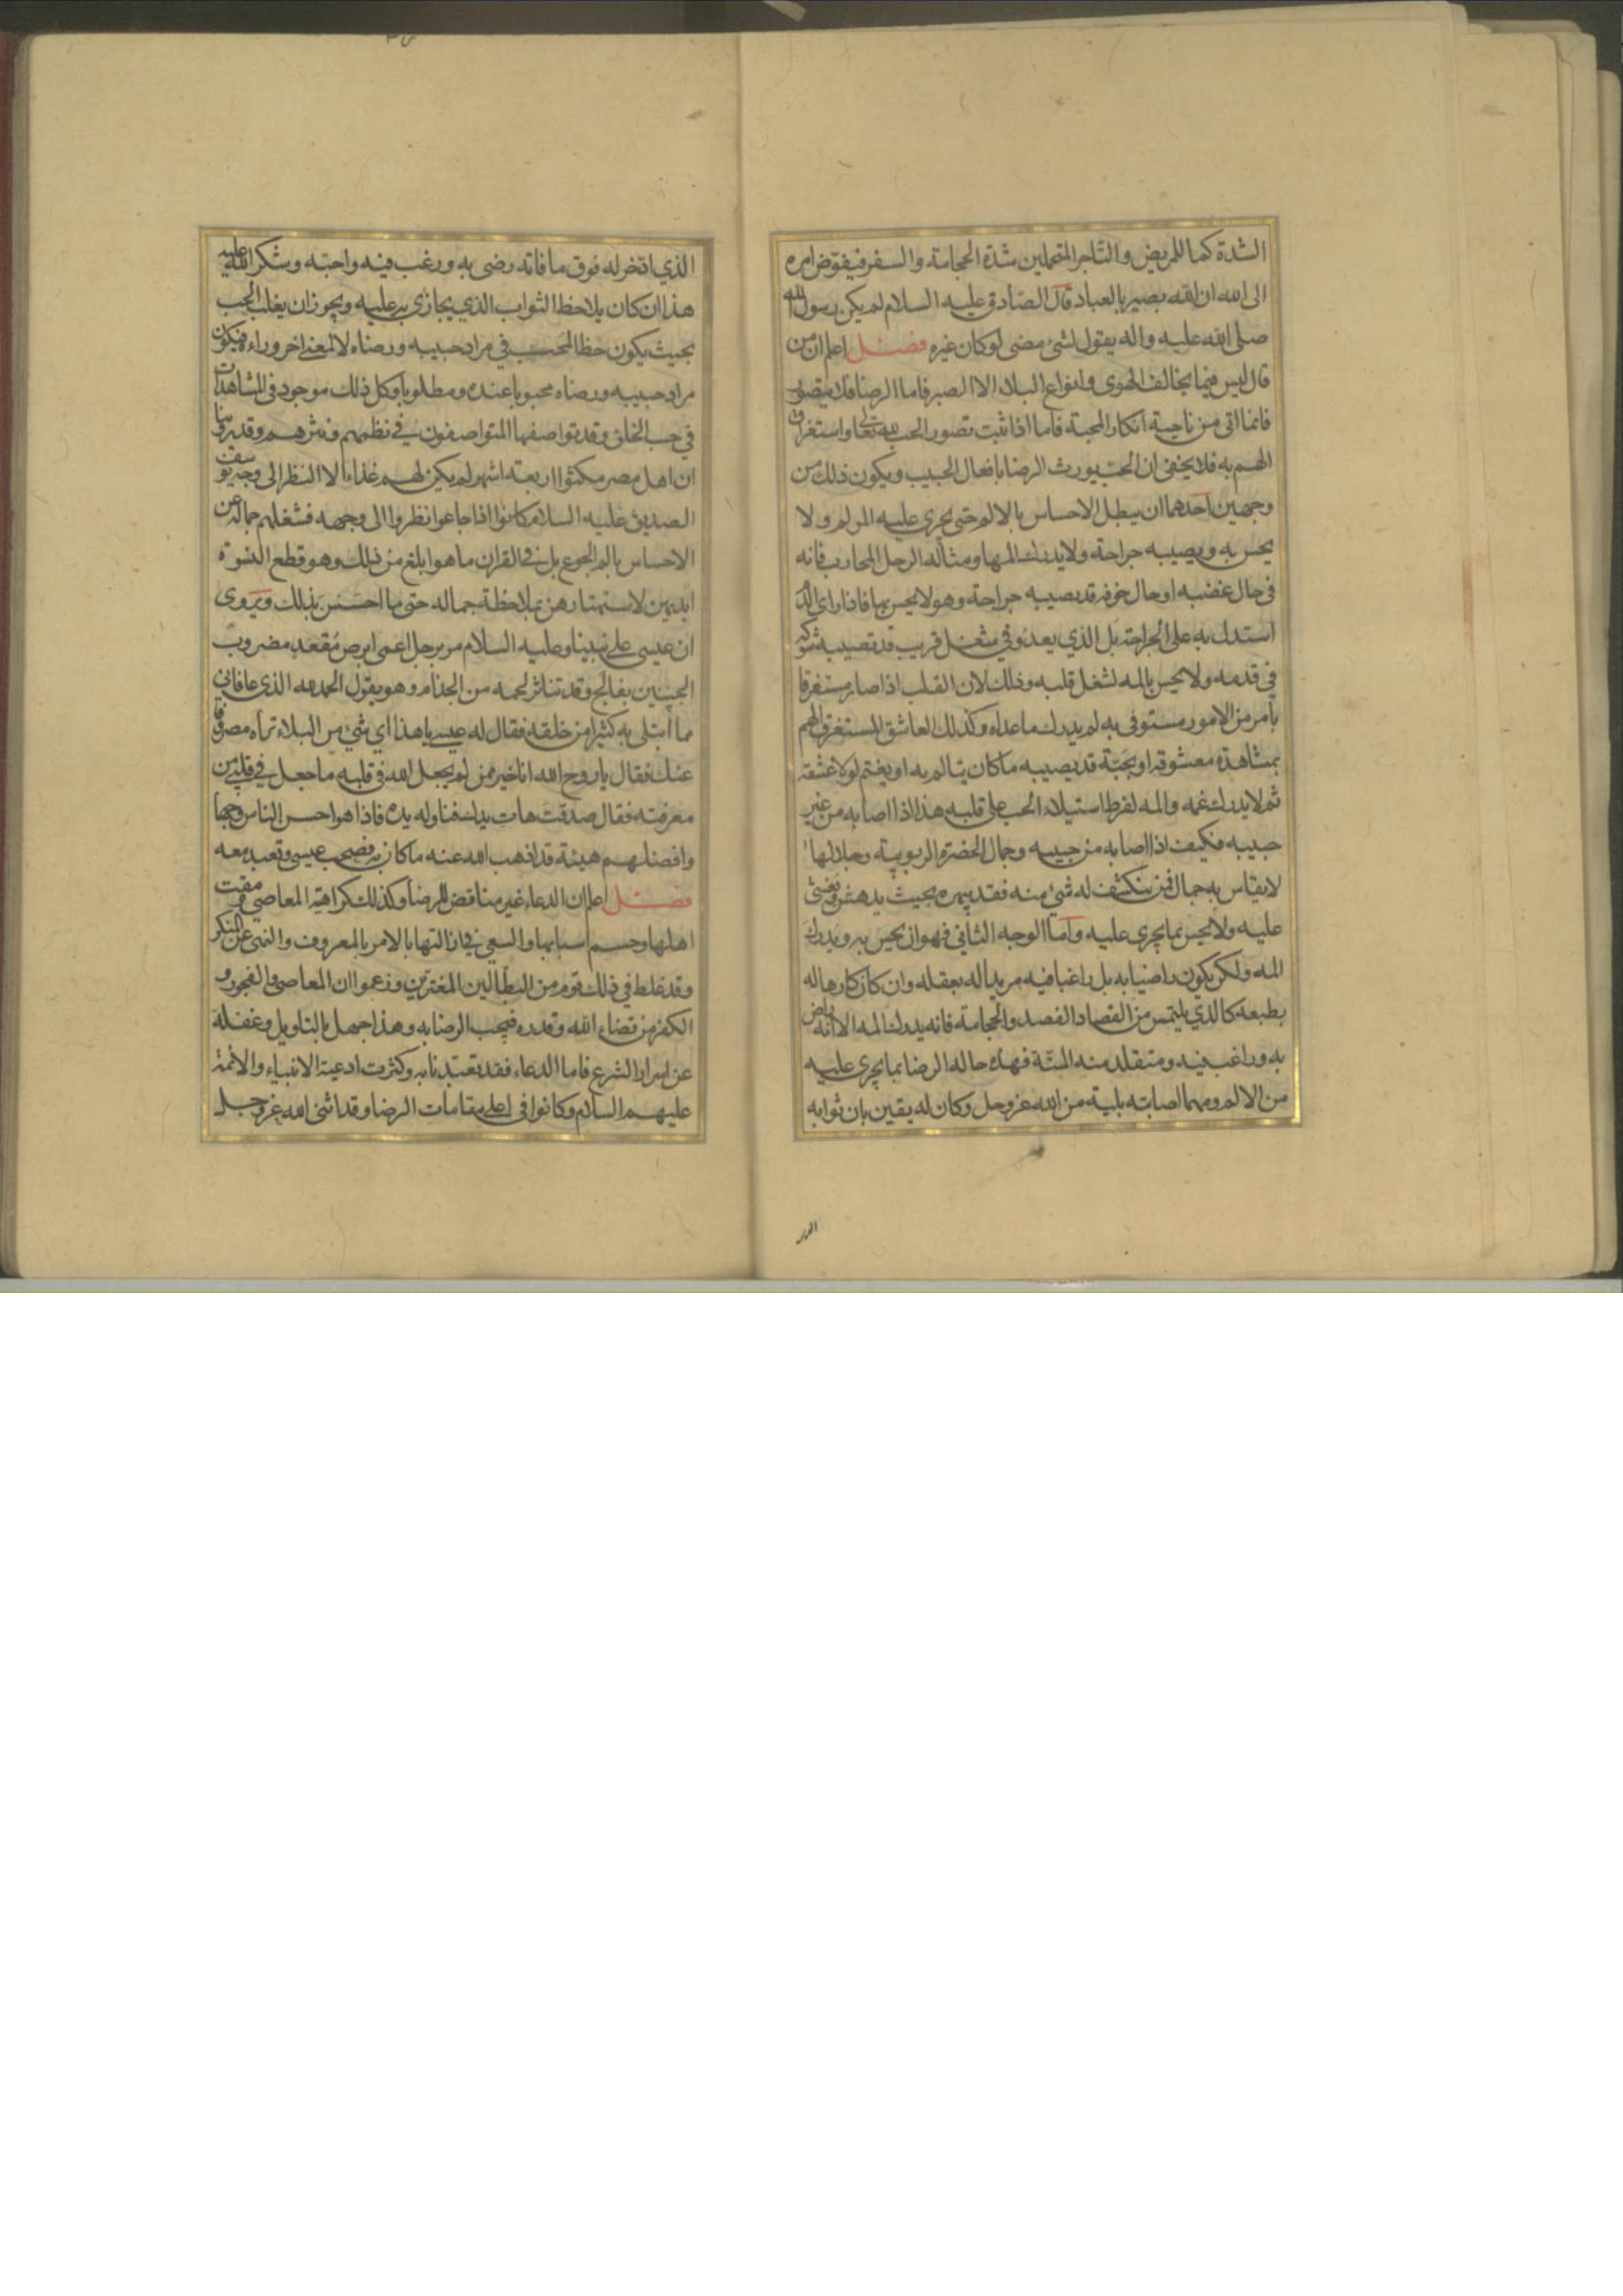 الشدة كما للمريض والتاجر المتحملين شدة الحجامة والسفر فيفوض امره
الى الله ان الله بصير بالعباد قال الصادق عليه السلام لم يكن رسول الله
صلى الله عليه واله يقول لشئ مضى لو كان غيره فصل اعلم ان من
قال ليس فيما يخالف الهوى وانواع البلاء الا الصبر فاما الرضا فلا يتصور
فانما اتى من ناحية انكار المحبة فاما اذا ثبت تصور الحب لله تعالى واستغراق
الهم به فلا يخفى ان الحب يورث الرضا بافعال الحبيب ويكون ذلك من
وجهين احدهما ان يبطل الاحساس بالالم حتى يجرى عليه المولم ولا
يحس به ويصيبه جراحة ولا يدرك المها ومثاله الرجل المحارب فانه
فى حال غضبه او حال خوفه قد يصيبه جراحة وهو لا يحس بها فاذا راى الدم
استدل به على الجراحة بل الذي يعدو في شغل قريب قد تصيبه شوكة
في قدمه ولا يحس بالمه لشغل قلبه وذلك لان القلب اذا صار مستغرقا
بأمر من الامور مستوفى به لم يدرك ما عداه وكذلك العاشق المستغرق الهم
بمشاهدة معشوقه او بحبه قد يصيبه ما كان يتالم به او يغتم لولا عشقه
ثم لا يدرك غمه والمه لفرط استيلاء الحب على قلبه هذا اذا اصابه من غير
حبيبه فكيف اذا اصابه من حبيبه وجمال الحضرة الربوبية وجلالها
لا يقاس به جمال فمن ينكشف له شئ منه فقد يبهره بحيث يدهش ويغشى
عليه ولا يحس بما يجرى عليه وأما الوجه الثانى فهو ان يحس به ويدرك
المه ولكن يكون راضيا به بل راغبا فيه مريدا له بعقله وان كان كارها له
بطبعه كالذي يلتمس من الفصاد الفصد والحجامة فانه يدرك المه الا انه راض
به وراغب فيه ومتقلد منه المنّة فهذه حاله الرضا بما يجرى عليه
من الالم ومهما اصابته بلية من الله عز وجل وكان له يقين بان ثوابه
الذي ادخر له فوق ما فاته رضى به ورغب فيه واحبّه وشكر الله عليه
هذا ان كان يلاحظ الثواب الذي يجازى به عليه ويجوز ان يغلب الحب
بحيث يكون حظ المحب في مراد حبيبه ورضاه لا لمعنى اخر وراءه فيكون
مراد حبيبه ورضاه محبوبا عنده ومطلوبا وكل ذلك موجود فى المشاهدات
في حب الخلق وقد تواصفها المتواصفون في نظمهم ونثرهم وقد روينا
ان اهل مصر مكثوا اربعة اشهر لم يكن لهم غذاء الا النظر الى وجه يوسف
الصديق عليه السلام كانوا اذا جاعوا نظروا الى وجهه فشغلهم جماله عن
الاحساس بالم الجوع بل في القران ما هو ابلغ من ذلك وهو قطع النسوة
ايديهن لاستهتارهن بملاحظة جماله حتى ما احسسن بذلك ويروى
ان عيسى على نبينا وعليه السلام مر برجل اعمى ابرص مُقعد مضروب
الجنبين بفالج وقد تناثر لحمه من الجذام وهو يقول الحمد لله الذى عافانى
مما ابتلى به كثيرا من خلقه فقال له عيسى يا هذا اي شئ من البلاء تراه مصروفا
عنك فقال يا روح الله انا خير ممن لم يجعل الله فى قلبه ما جعل في قلبي من
معرفته فقال صدقت هات يدك فناوله يده فاذا هو احسن الناس وجها
وافضلهم هيئة قد اذهب الله عنه ما كان به فصحب عيسى وتعبد معه
فصل اعلم ان الدعاء غير مناقض للرضا وكذلك كراهية المعاصي ومقت
اهلها وحسم اسبابها والسعى في ازالتها بالامر بالمعروف والنهى عن المنكر
وقد غلط في ذلك قوم من البطالين المغترين وزعموا ان المعاصى والفجور و
الكفر من قضاء الله وقدره فيجب الرضا به وهذا جهل بالتاويل وغفلة
عن اسرار الشرع فاما الدعاء فقد تعبدنا به وكثرت ادعية الانبياء والائمة
عليهم السلام وكانوا فى اعلى مقامات الرضا وقد اثنى الله عز وجل